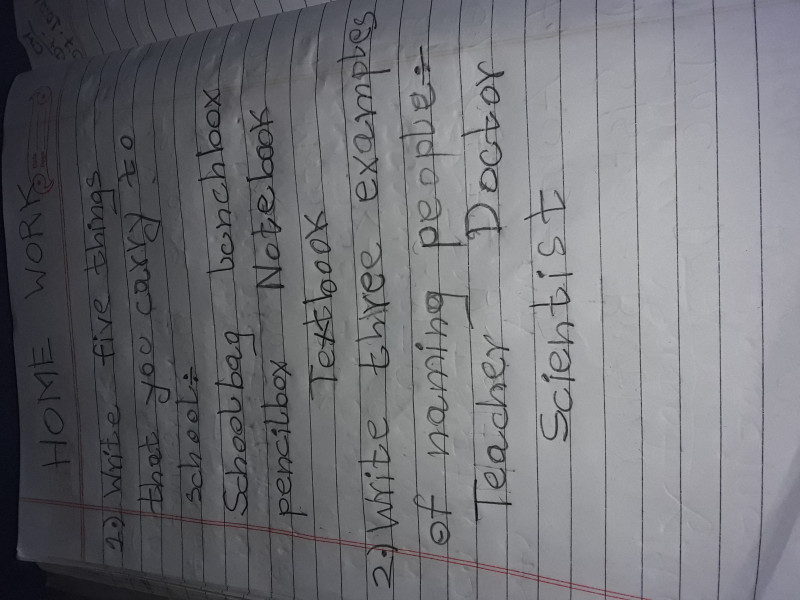 HOME WORK
1.) Write five things
that you carry to
school:-
Schoolbag lunchbox
pencilbox Notebook
Textbook
2.) Write three examples
of naming people:-
Teacher Doctor
Scientist